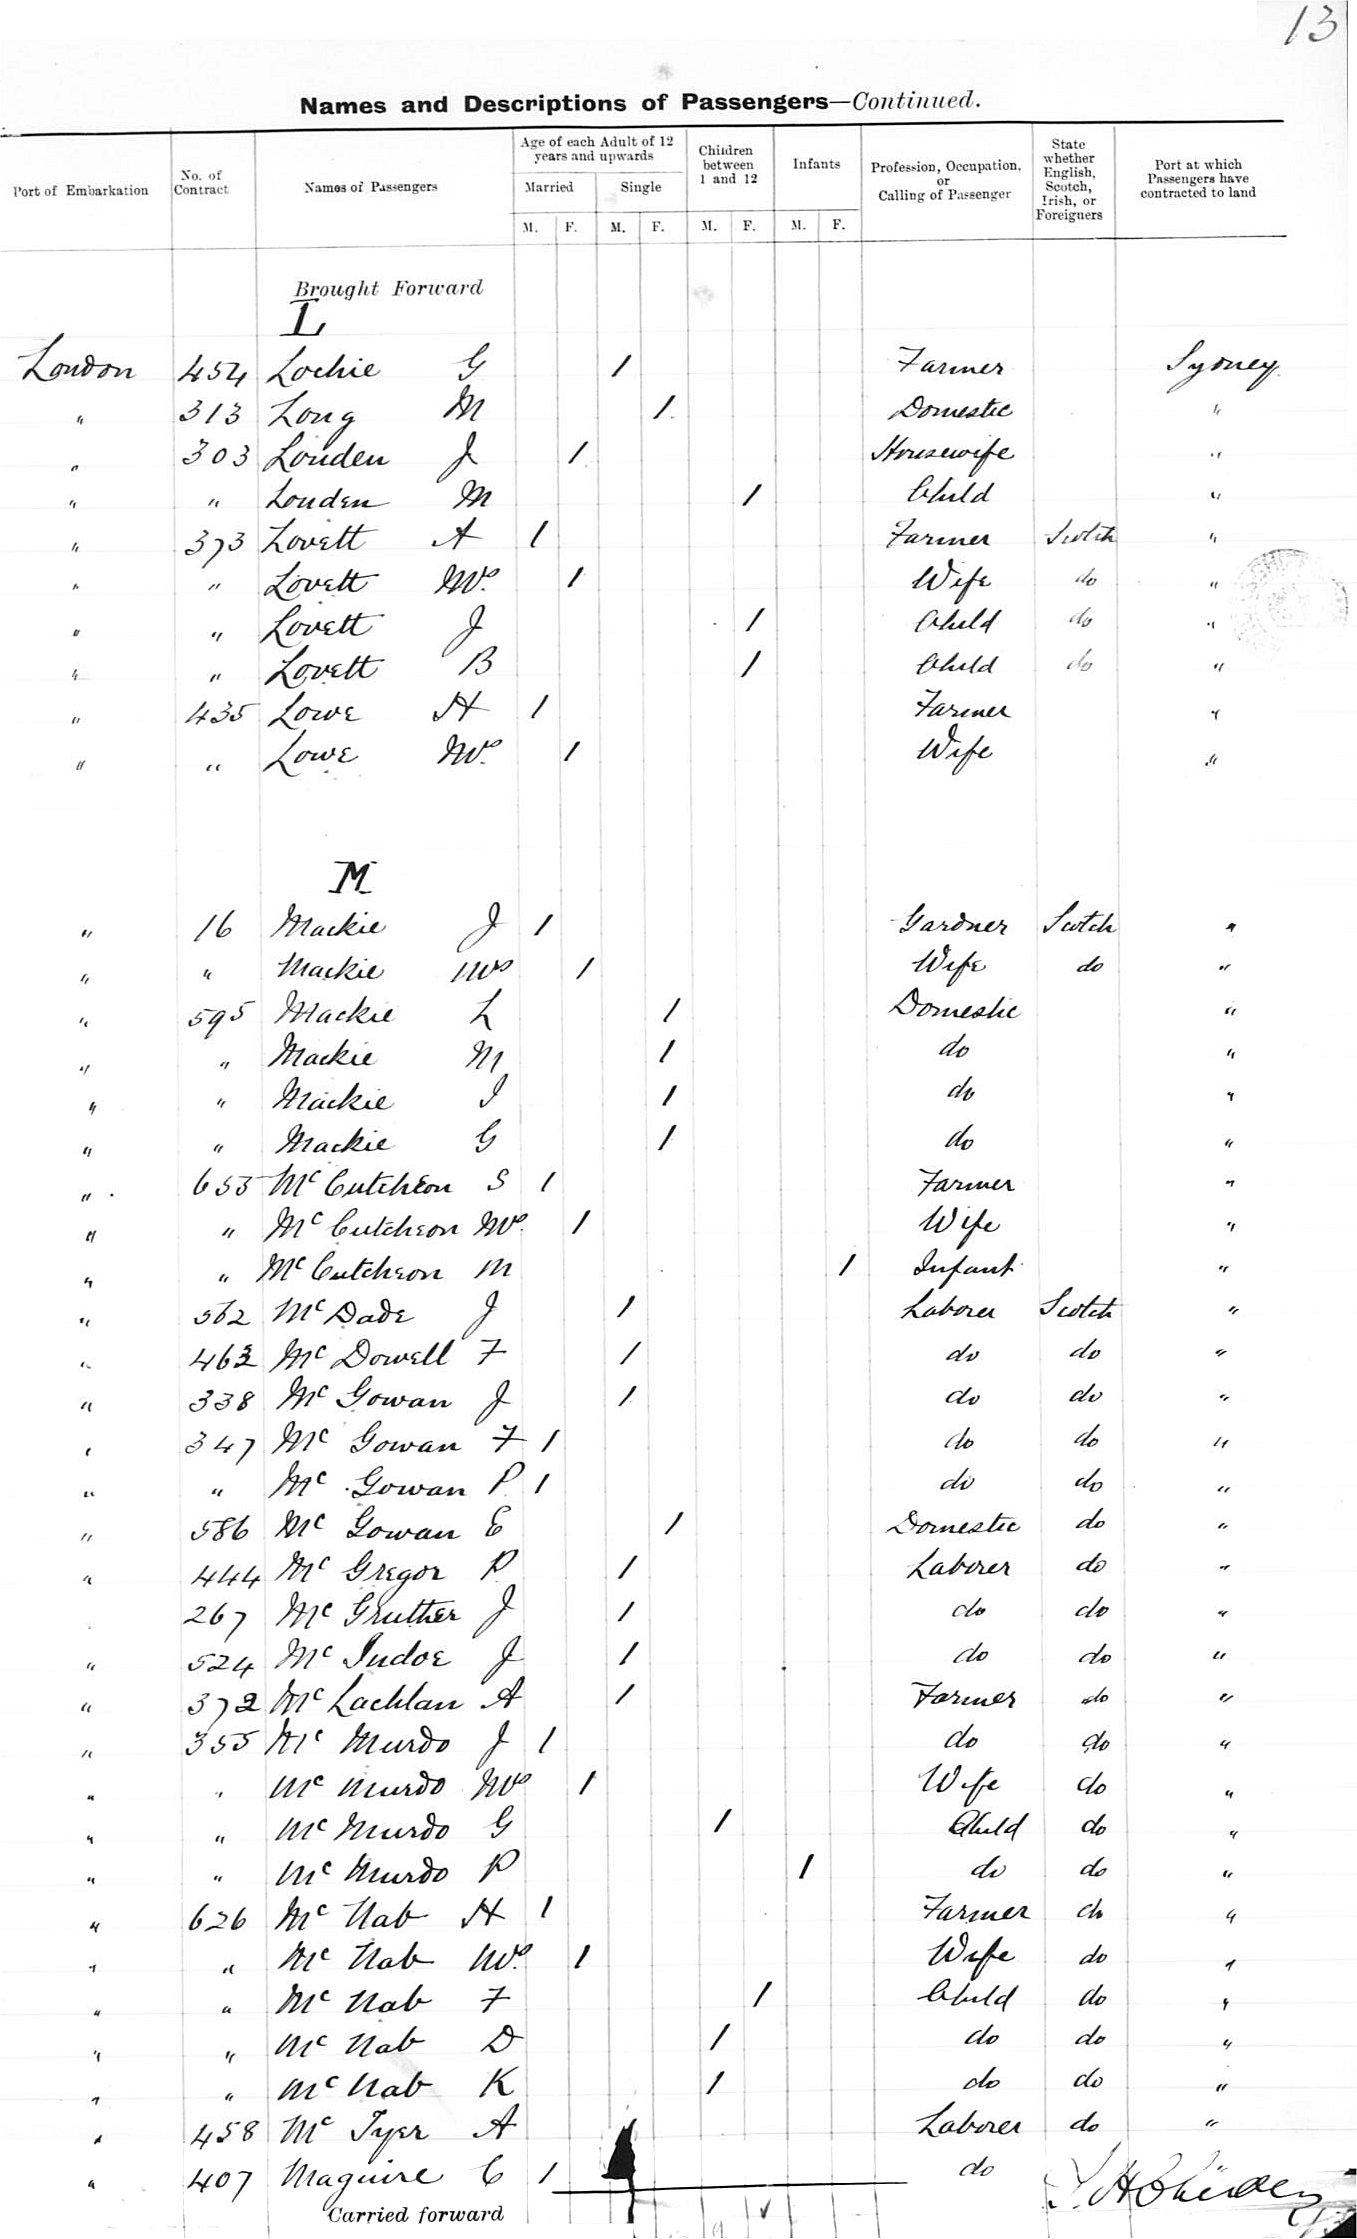 13
Names and Descriptions of Passengers—Continued.
Port of Embarkation No. of Contract Names of Passengers Age of each Adult of 12 years and upwards Married M. F. Single M. F. Children between 1 and 12 M. F. Infants M. F. Profession, Occupation, or Calling of Passenger State whether English, Scotch, Irish, or Foreigners Port at which Passengers have contracted to land
Brought Forward
L
London 454 Lochie G 1 Farmer Sydney
" 313 Long M 1 Domestic "
" 303 Louden J 1 Housewife "
" " Louden M 1 Child "
" 373 Lovett A 1 Farmer Scotch "
" " Lovett Mrs. 1 Wife do "
" " Lovett J 1 Child do "
" " Lovett B 1 Child do "
" 435 Lowe H 1 Farmer "
" " Lowe Mrs. 1 Wife "
M
" 16 Mackie J 1 Gardner Scotch "
" " Mackie Mrs 1 Wife do "
" 595 Mackie L 1 Domestic "
" " Mackie M 1 do "
" " Mackie I 1 do "
" " Mackie G 1 do "
" 653 Mc Cutcheon S 1 Farmer "
" " Mc Cutcheon Mrs. 1 Wife "
" " Mc Cutcheon M 1 Infant "
" 562 Mc Dade J 1 Laborer Scotch "
" 463 Mc Dowell F 1 do do "
" 338 Mc Gowan J 1 do do "
" 347 Mc Gowan F 1 do do "
" " Mc Gowan P 1 do do "
" 586 Mc Gowan E 1 Domestic do "
" 444 Mc Gregor P 1 Laborer do "
267 Mc Gruther J 1 do do "
" 524 Mc Indoe J 1 do do "
" 372 Mc Lachlan A 1 Farmer do "
" 355 Mc Murdo J 1 do do "
" " Mc Murdo Mrs 1 Wife do "
" " Mc Murdo G 1 Child do "
" " Mc Murdo P 1 do do "
" 626 Mc Nab H 1 Farmer do "
" " Mc Nab Mrs. 1 Wife do "
" " Mc Nab F 1 Child do "
" " Mc Nab D 1 do do "
" " Mc Nab K 1 do do "
" 458 Mc Tyer A 1 Laborer do "
" 407 Maguire C 1 do
Carried forward